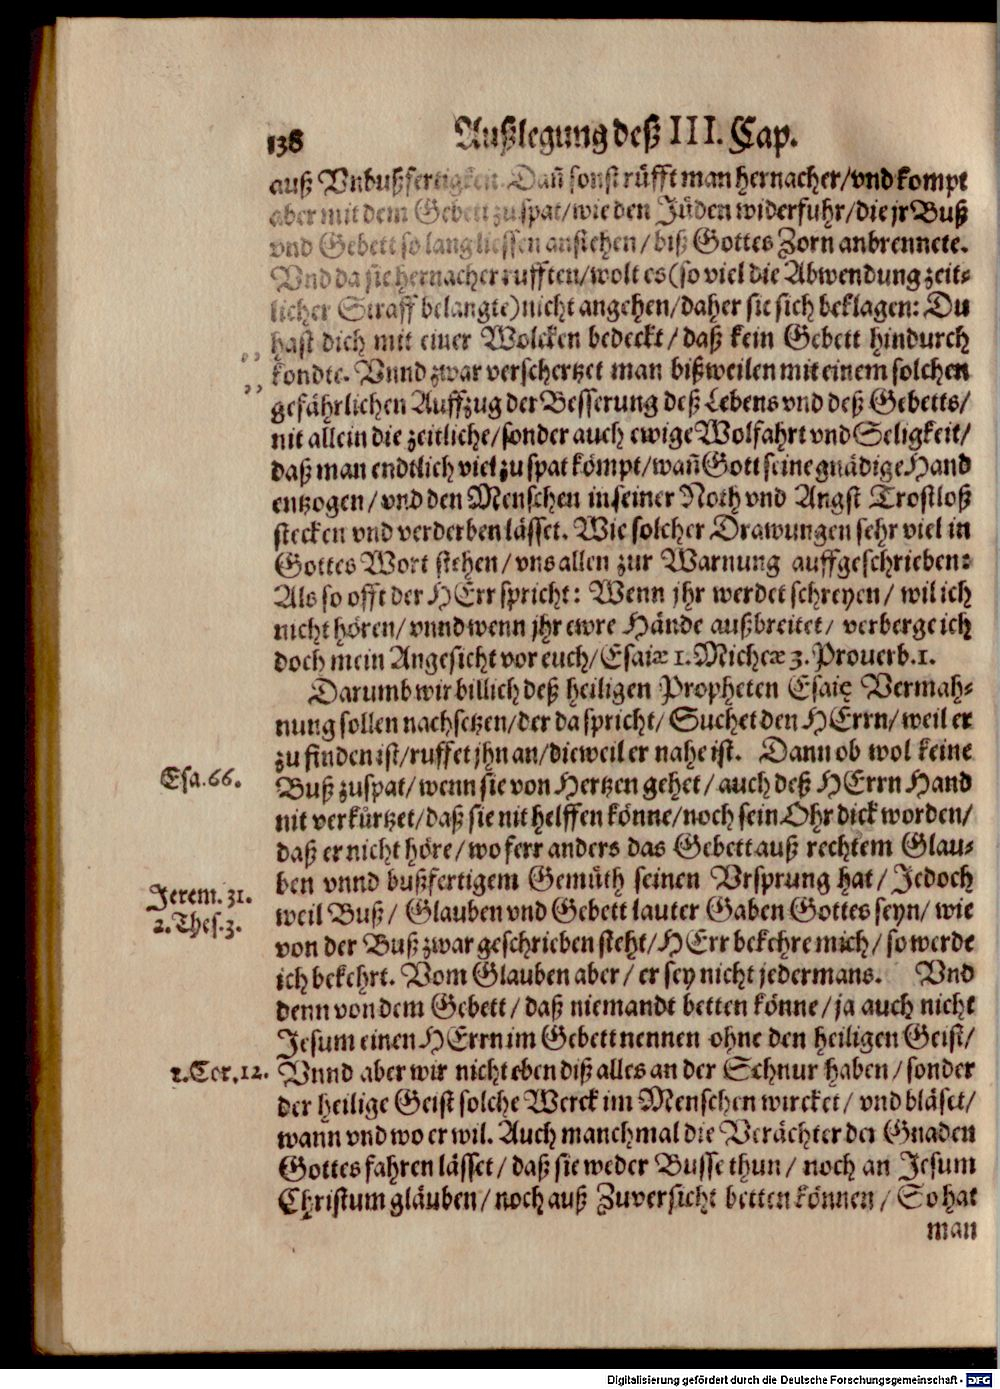 138 Außlegung deß III. Cap.
auß Vnbußfertigkeit. Dañ sonst rüfft man hernacher/vnd kompt
aber mit dem Gebett zu spat/wie den Jüden widerfuhr/die jr Buß
vnd Gebett so lang liessen anstehen/biß Gottes Zorn anbrennete.
Vnd da sie hernacher rufften/wolt es (so viel die Abwendung zeit-
licher Straff belangte) nicht angehen/daher sie sich beklagen: Du
hast dich mit einer Wolcken bedeckt/daß kein Gebett hindurch
kondte. Vnnd zwar verschertzet man bißweilen mit einem solchen
gefährlichen Auffzug der Besserung deß Lebens vnd deß Gebetts/
nit allein die zeitliche/sonder auch ewige Wolfahrt vnd Seligkeit/
daß man endtlich viel zu spat kömpt/wañ Gott seine gnädige Hand
entzogen/vnd den Menschen in seiner Noth vnd Angst Trostloß
stecken vnd verderben lässet. Wie solcher Drawungen sehr viel in
Gottes Wort stehen/vns allen zur Warnung auffgeschrieben:
Als so offt der HErr spricht: Wenn jhr werdet schreyen/wil ich
nicht hören/vnnd wenn jhr ewre Hände außbreitet/verberge ich
doch mein Angesicht vor euch/Esaiæ 1. Micheæ 3. Prouerb. 1.
Darumb wir billich deß heiligen Propheten Esaię Vermah-
nung sollen nachsetzen/der da spricht/Suchet den HErrn/weil er
zu finden ist/ruffet jhn an/dieweil er nahe ist. Dann ob wol keine
Esa. 66. Buß zuspat/wenn sie von Hertzen gehet/auch deß HErrn Hand
nit verkürtzet/daß sie nit helffen könne/noch sein Ohr dick worden/
daß er nicht höre/wo ferr anders das Gebett auß rechtem Glau-
Jerem. 31. ben vnnd bußfertigem Gemüth seinen Vrsprung hat/Jedoch
2. Thes. 3. weil Buß/Glauben vnd Gebett lauter Gaben Gottes seyn/wie
von der Buß zwar geschrieben steht/HErr bekehre mich/so werde
ich bekehrt. Vom Glauben aber/er sey nicht jedermans. Vnd
denn von dem Gebett/daß niemandt betten könne/ja auch nicht
Jesum einen HErrn im Gebett nennen ohne den heiligen Geist/
1. Cor. 12. Vnnd aber wir nicht eben diß alles an der Schnur haben/sonder
der heilige Geist solche Werck im Menschen wircket/vnd bläset/
wann vnd wo er wil. Auch manchmal die Verächter der Gnaden
Gottes fahren lässet/daß sie weder Busse thun/noch an Jesum
Christum gläuben/noch auß Zuversicht betten können/So hat
man
Digitalisierung gefördert durch die Deutsche Forschungsgemeinschaft - DFG